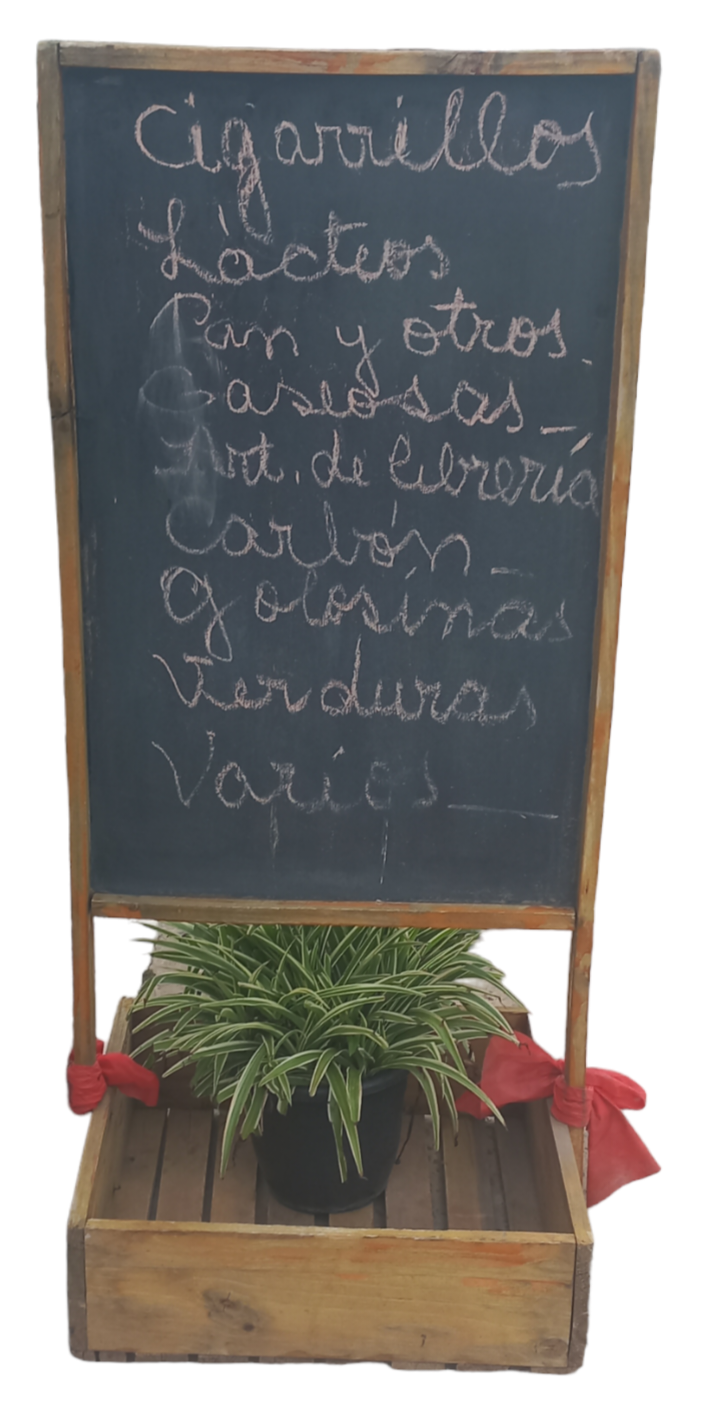 Cigarrillos
Lácteos
Pan y otros.
Gaseosas_
Art. de librería
Carbón_
Golosinas
Verduras
Varios_